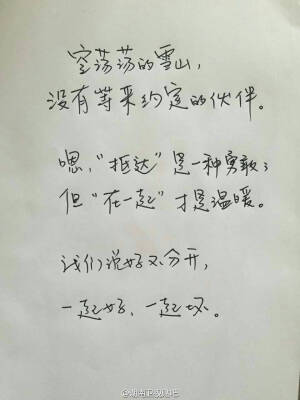 空荡荡的雪山,
没有等来约定的伙伴。
嗯,“抵达”是一种勇敢;
但“在一起”才是温暖。
我们说好不分开,
一起好、一起坏。